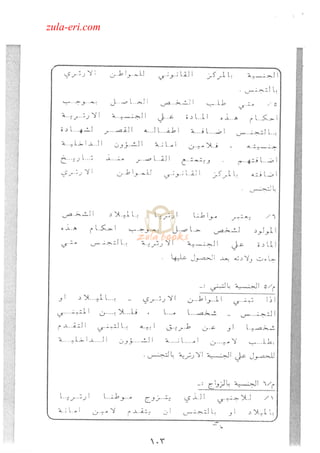 zula-eri.com
الجنسية بالمركز القانوني للمواطن الارتري
بالتجنس .
٥/ متي طلب الشخص الحاصل بموجب
احكام هذه المادة علي الجنسية الارترية
بالتجنس اضافة اطفاله القصر لشهادة
جنسيته ، فلامين امانة الشؤون الداخلية
اضافتهم . ويتمتع القاصر منذ تاريخ
اضافته بالمركز القانوني للمواطن الارتري
بالتجنس .
٦/ يعتبر مواطنا ارتريا بالميلاد الشخص
المولود لشخص حاصل بموجب احكام هذه
المادة علي الجنسية الارترية بالتجنس متي
جاءت ولادته بعد الحصول عليها .
zula books
م/٥ الجنسية بالتبني :-
اذا تبني المواطن الارتري - بالميلاد او
التجنس - شخصا ما ، فللابن المتبني
شخصيا او عن طريق ابيه بالتبني التقدم
بطلب لامين امانة الشؤون الداخلية
للحصول علي الجنسية الارترية بالتجنس .
م/٦ الجنسية بالزواج :-
١/ للاجنبي الذي يتزوج مواطنا ارتريا
بالميلاد او بالتجنس ان يتقدم لامين امانة
١٠٣